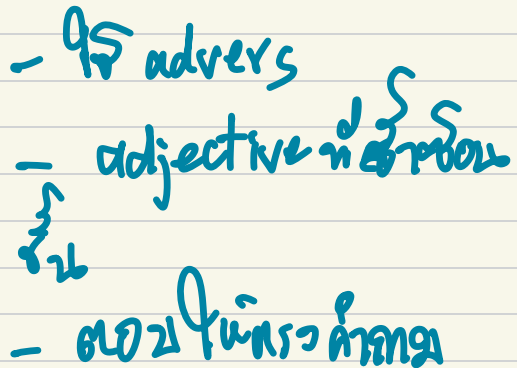 - ใช้ advers
- adjective ที่ซับซ้อน
ขึ้น
- ตอบให้ตรงคำถาม